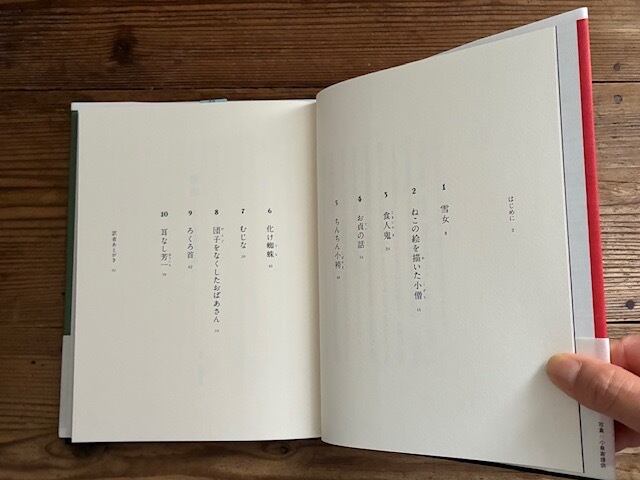 はじめに 2
1 雪女 8
2 ねこの絵を描いた小僧
3 食人鬼
4 お貞の話
5 ちんちん小袴
6 化け蜘蛛
7 むじな
8 団子をなくしたおばあさん
9 ろくろ首
10 耳なし芳一
訳者あとがき